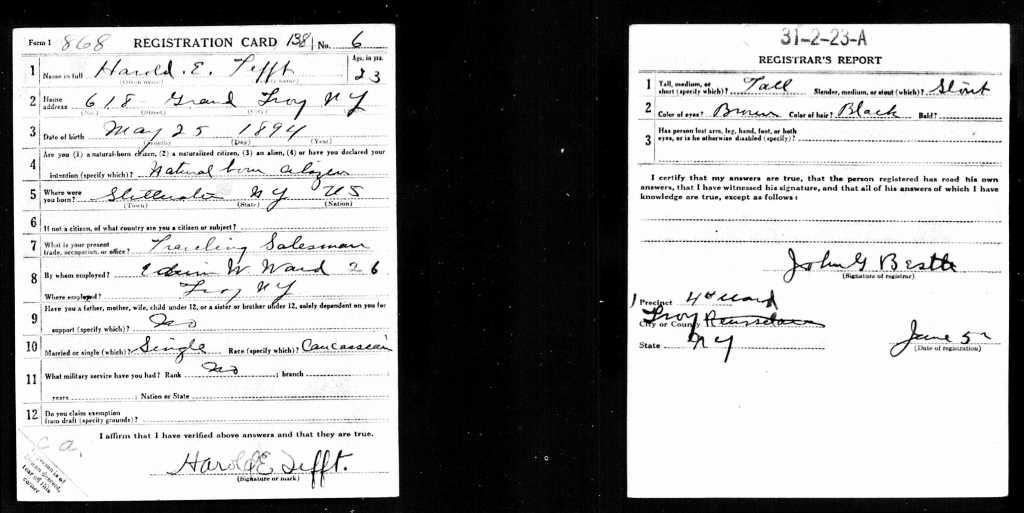 Form 1 868 REGISTRATION CARD 138 No. 6
1 Name in full Harold. E. Tefft Age, in yrs. 23
(Given name) (Family name)
2 Home address 618 Grand Troy NY
(No.) (Street) (City)
3 Date of birth May 25 1894
(Month) (Day) (Year)
4 Are you (1) a natural-born citizen, (2) a naturalized citizen, (3) an alien, (4) or have you declared your
intention (specify which)? Natural born citizen
5 Where were you born? Stillwater NY US
(Town) (State) (Nation)
6 If not a citizen, of what country are you a citizen or subject?
7 What is your present trade, occupation, or office? Traveling Salesman
8 By whom employed? Edwin W. Ward 26
Where employed? Troy NY
9 Have you a father, mother, wife, child under 12, or a sister or brother under 12, solely dependent on you for
support (specify which)? No
10 Married or single (which)? Single Race (specify which)? Caucassean
11 What military service have you had? Rank No ; branch
years ; Nation or State
12 Do you claim exemption from draft (specify grounds)?
I affirm that I have verified above answers and that they are true.
Harold E Tefft.
(Signature or mark)
C a.
If person is of
African descent,
tear off this
corner
31-2-23-A
REGISTRAR'S REPORT
1 Tall, medium, or short (specify which)? Tall Slender, medium, or stout (which)? Stout
2 Color of eyes? Brown Color of hair? Black Bald?
3 Has person lost arm, leg, hand, foot, or both
eyes, or is he otherwise disabled (specify)?
I certify that my answers are true, that the person registered has read his own
answers, that I have witnessed his signature, and that all of his answers of which I have
knowledge are true, except as follows:
John G Bestle
(Signature of registrar)
Precinct 4th Ward
City or County Troy Rensselaer
State NY
June 5
(Date of registration)